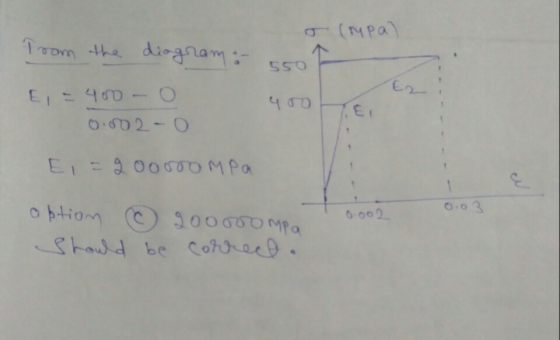 From the diagram:-
E1 = 400 - 0
0.002 - 0
E1 = 200000 MPa
option (C) 200000 MPa
should be correct.
σ (MPa)
550
400
E2
E1
ε
0.002
0.03